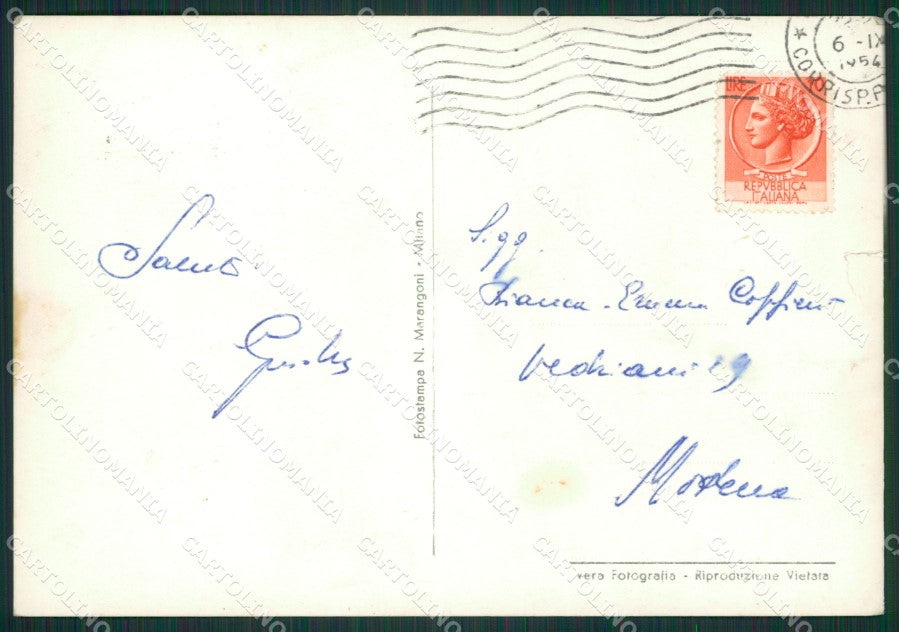 6 - IX
1954
CORRISP. P
LIRE
POSTE
REPVBBLICA
ITALIANA
Saluti
Fotostampa N. Marangoni - Milano
S.gg
Bianca - Emma
Vedriani 29
Modena
vera Fotografia - Riproduzione Vietata
CARTOLINOMANIA